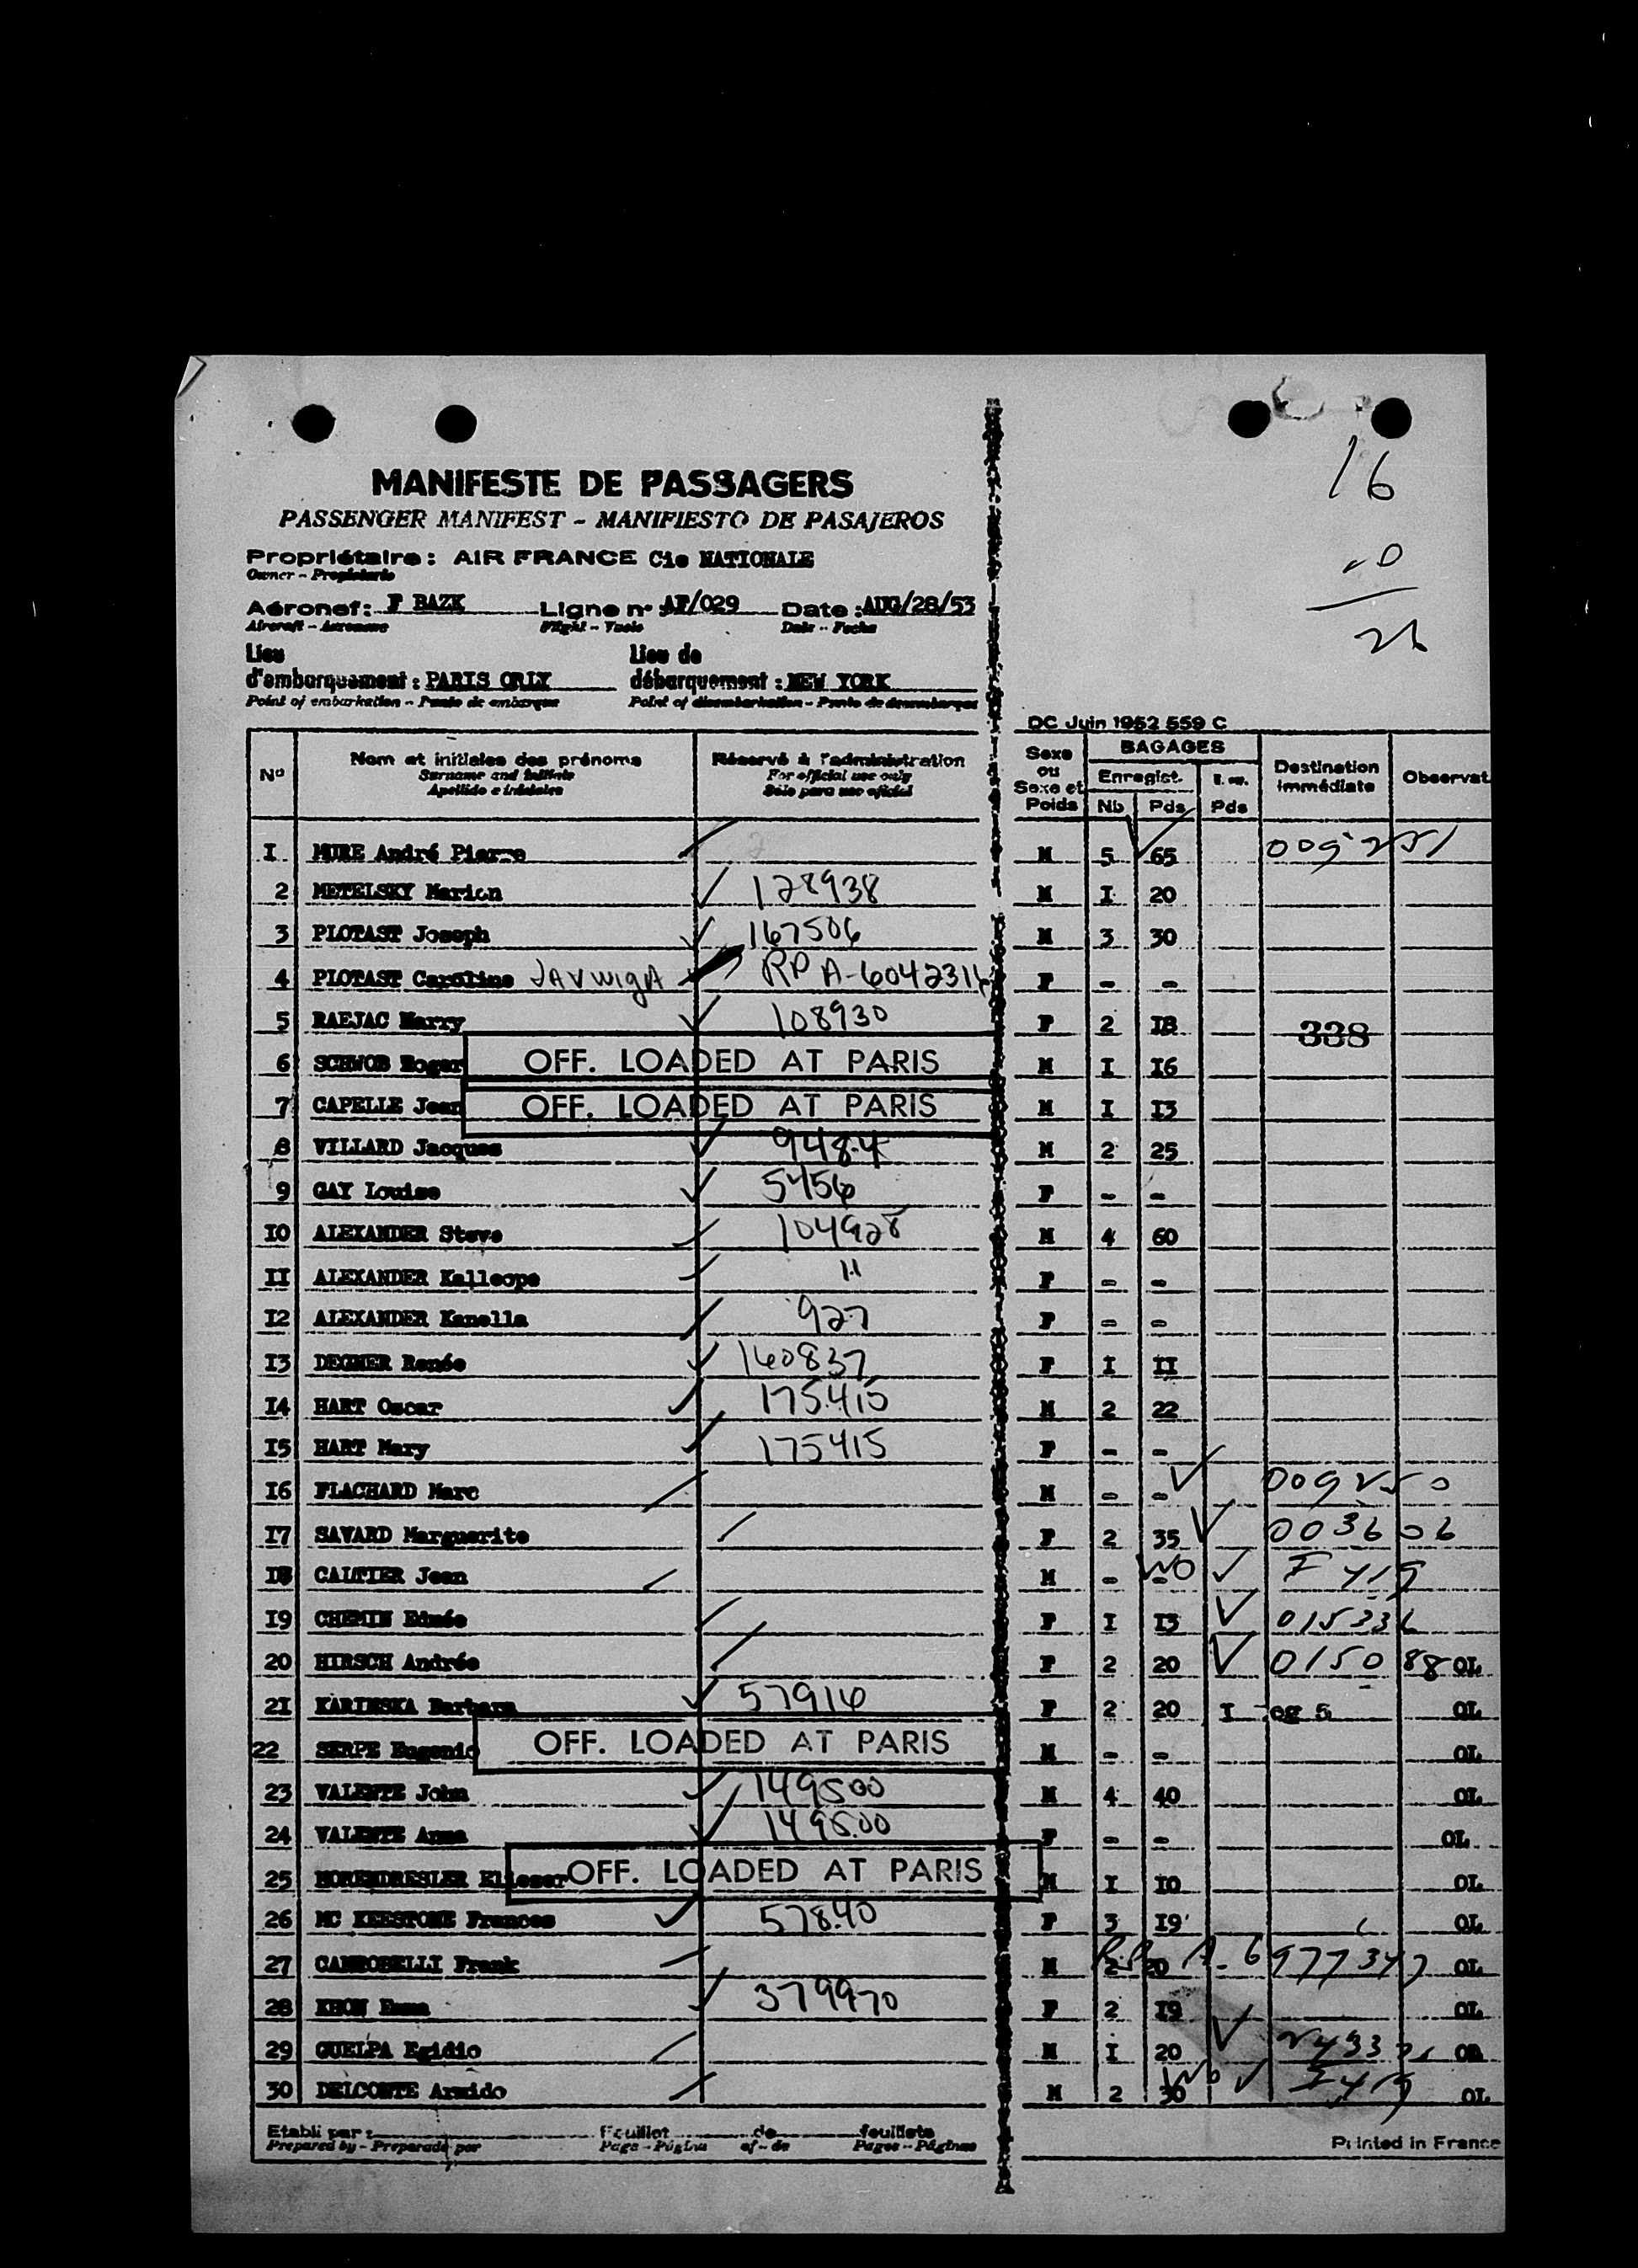 16
MANIFESTE DE PASSAGERS
PASSENGER MANIFEST - MANIFIESTO DE PASAJEROS
Propriétaire : AIR FRANCE Cie NATIONALE
Owner - Propietario
Aéronef : F BAZK Ligne n° : AF/029 Date : AUG/28/53
Aircraft - Aeronave Flight - Vuelo Date - Fecha
Lieu d'embarquement : PARIS ORLY Lieu de débarquement : NEW YORK
Point of embarkation - Punto de embarque Point of disembarkation - Punto de desembarque
DC Juin 1952 559 C
N° Nom et initiales des prénoms Réservé à l'administration Sexe ou Sexe et Poids BAGAGES Destination immédiate Observat.
Surname and initials For official use only Enregist.
Apellido e iniciales Sólo para uso oficial Nb Pds Pds
I MURE André Pierre M 5 65 009251
2 METELSKY Marion 128938 M I 20
3 PLOTAST Joseph 167506 M 3 30
4 PLOTAST Caroline RP A-604231 F - -
5 RAEJAC Harry 108930 F 2 I8 338
6 SCHWOB Roger OFF. LOADED AT PARIS M I I6
7 CAPELLE Jean OFF. LOADED AT PARIS M I I3
8 VILLARD Jacques 948.4 M 2 25
9 GAY Louise 5456 F - -
I0 ALEXANDER Steve 104928 M 4 60
II ALEXANDER Kalleope 11 F - -
I2 ALEXANDER Kanella 927 F - -
I3 DEGMER Renée 160837 F I II
I4 HART Oscar 175.415 M 2 22
I5 HART Mary 175415 F - -
I6 FLACHARD Marc M - - 009250
I7 SAVARD Marguerite F 2 35 003606
I8 CALTIER Jean M - - WO F 419
I9 CHEMIN Edmée F I I3 015336
20 HIRSCH Andrée F 2 20 015088 OL
2I KARINSKA Barbara 57916 F 2 20 I OL
22 SERPE Eugenio OFF. LOADED AT PARIS M - - OL
23 VALENTE John 149500 M 4 40 OL
24 VALENTE Anna 1495.00 F - - OL
25 Eliezer OFF. LOADED AT PARIS M I I0 OL
26 MC KEESTONE Frances 578.40 F 3 I9 OL
27 Frank M 2 20 RP A-6977347 OL
28 KHON Emma 379970 F 2 I9 OL
29 GUELPA Egidio M I 20
30 DELCONTE Armido M 2 30 WO OL
Etabli par : Feuillet de feuillets
Prepared by - Preparado por Page - Página of - de Pages - Páginas
Printed in France